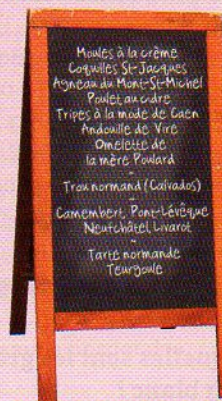 Moules à la crème
Coquilles St-Jacques
Agneau du Mont-St-Michel
Poulet au cidre
Tripes à la mode de Caen
Andouille de Vire
Omelette de
la mère Poulard
~
Trou normand (Calvados)
~
Camembert, Pont-Lévêque
Neufchâtel, Livarot
~
Tarte normande
Teurgoule